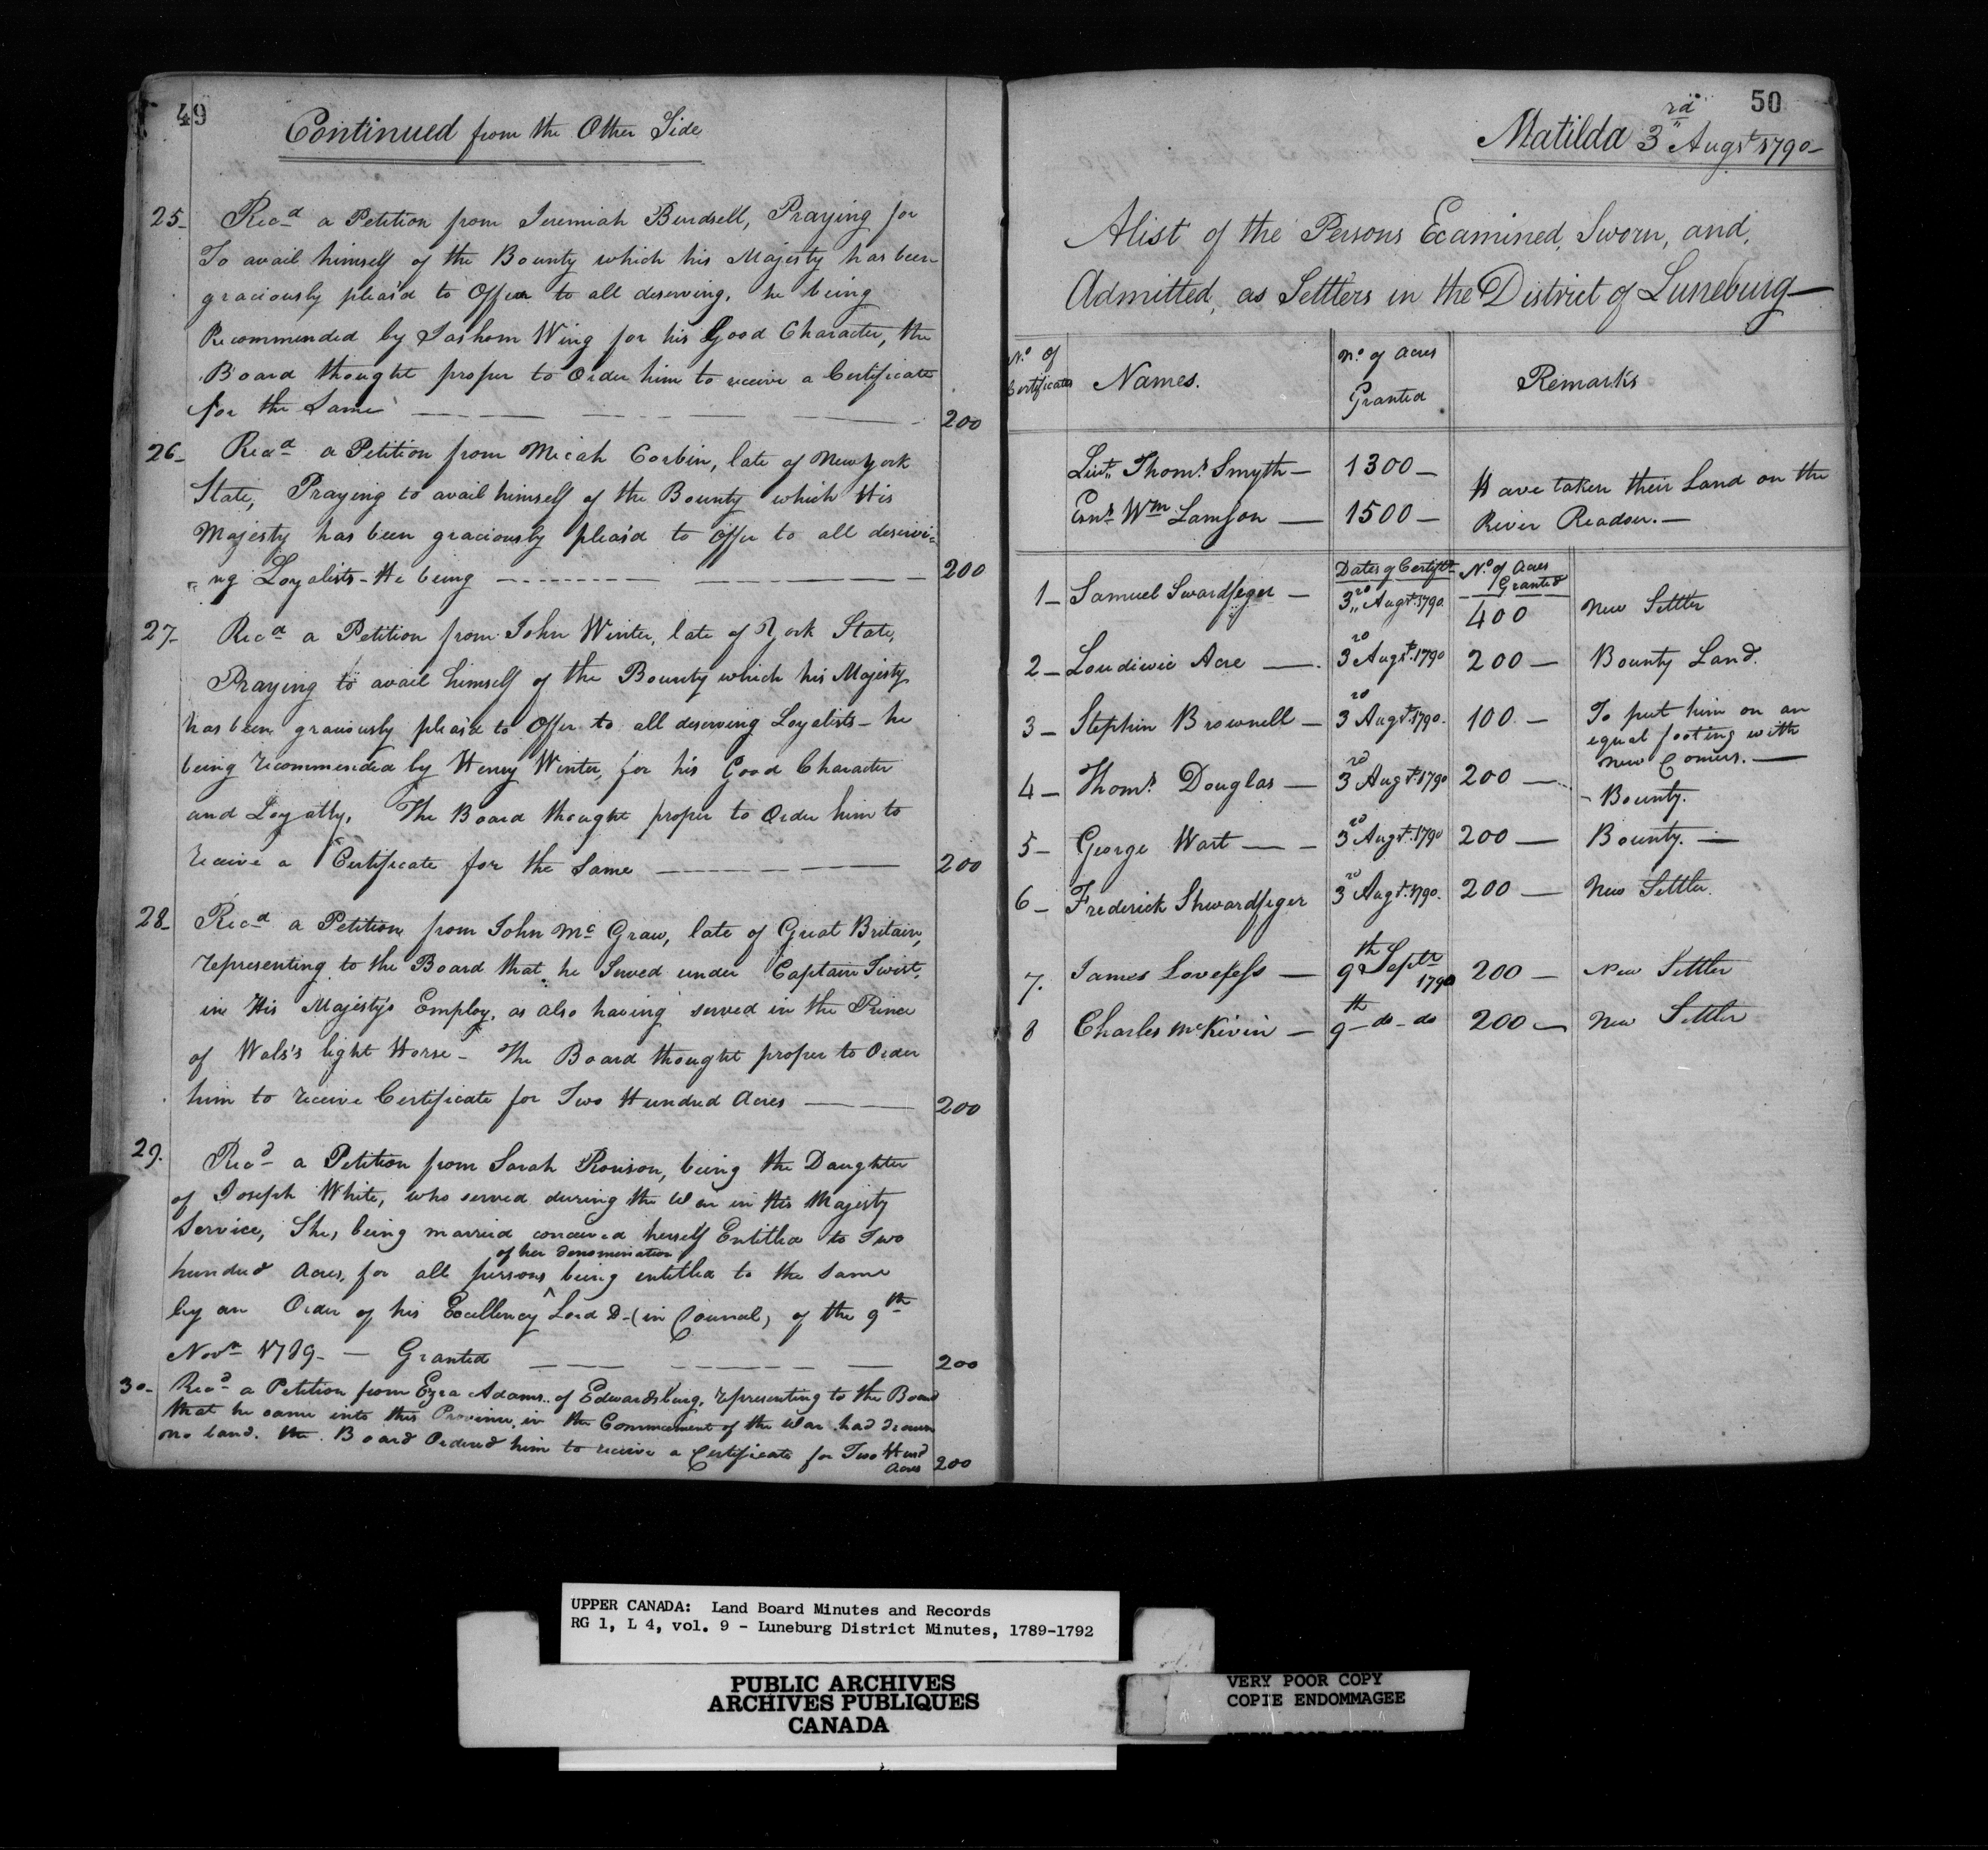 49
Continued from the Other Side
25- Recd a Petition from Jeremiah Birdsell, Praying for
To avail himself of the Bounty which his Majesty has been
graciously pleas'd to Offer to all deserving, he being
Recommended by Jashom Wing for his Good Character, the
Board thought proper to Order him to receive a Certificate
for the Same — — — — — 200
26- Recd a Petition from Micah Corbin, late of New York
State, Praying to avail himself of the Bounty which His
Majesty has been graciously pleas'd to offer to all deservi-
ng Loyalists - He being — — — 200
27- Recd a Petition from John Winter, late of York State,
Praying to avail himself of the Bounty which his Majesty
has been graciously pleas'd to Offer to all deserving Loyalists - he
being recommended by Henry Winter, for his Good Character
and Loyalty, The Board thought proper to Order him to
receive a Certificate for the Same — — — 200
28- Recd a Petition from John Mc Graw, late of Great Britain,
representing to the Board that he Served under Captain Twist,
in His Majesty's Employ, as also having served in the Prince
of Wals's light Horse - The Board thought proper to Order
him to receive Certificate for Two Hundred Acres — — 200
29. Recd a Petition from Sarah Ronison, being the Daughter
of Joseph White, who served during the War in His Majesty
Service, She, being married conceived herself Entitled to Two
of her denomination
hundred Acres, for all persons being entitled to the Same
by an Order of his Excellency ^ Lord D- (in Council) of the 9th
Novr 1789 - — Granted — — — 200
30- Recd a Petition from Ezra Adams.. of Edwardsburg, representing to the Board
that he came into this Province, in the Commcement of the War had drawn
no land. the Board Ordered him to receive a Certificate for Two Hund
Acres 200
50
Matilda 3rd Augst 1790-
A list of the Persons Examined, Sworn, and,
Admitted, as Settlers in the District of Luneburg—
No. of Certificates Names. No. of Acres Granted Remarks
Lieut. Thoms. Smyth — 1300 —
Ensn. Wm Lamson — 1500 —
Have taken their Land on the
River Readou. —
Dates of Certifts. No. of Acres Granted
1- Samuel Swardfeger — 3rd Augst. 1790 400 New Settler
2- Loudiwic Acre — 3rd Augst. 1790 200 — Bounty Land.
3- Stephin Brownell — 3rd Augst. 1790. 100 — To put him on an
equal footing with
new Comers. —
4- Thoms. Douglas — 3rd Augst. 1790 200 — Bounty.
5- George Wart — — 3rd Augst. 1790 200 — Bounty. —
6- Frederick Shwardfeger 3rd Augst. 1790. 200 — New Settler.
7. James Lovefess — 9th Septr 1790 200 — New Settler
8 Charles McKivin — 9th- do- do 200 — New Settler
UPPER CANADA: Land Board Minutes and Records
RG 1, L 4, vol. 9 - Luneburg District Minutes, 1789-1792
PUBLIC ARCHIVES
ARCHIVES PUBLIQUES
CANADA
VERY POOR COPY
COPIE ENDOMMAGEE
VERY POOR COPY